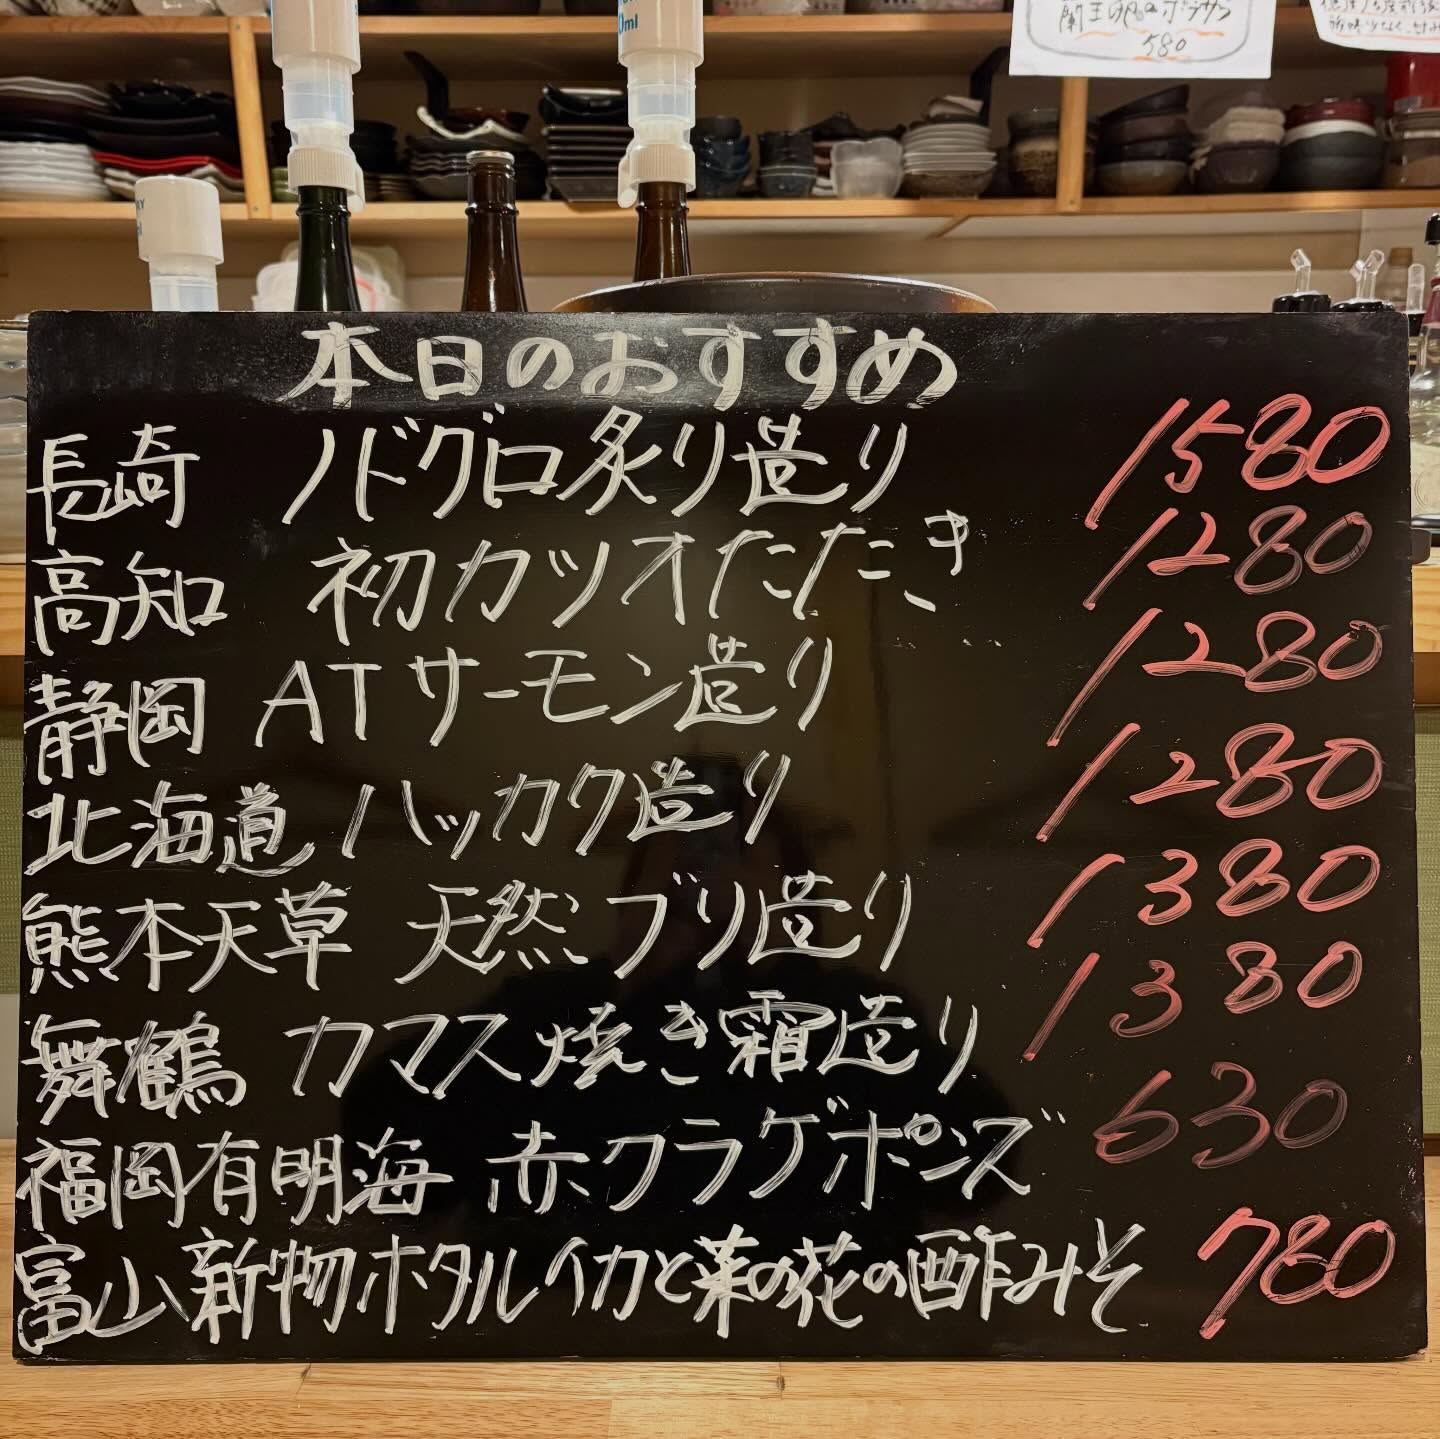 580
本日のおすすめ
長崎 ノドグロ炙り造り 1580
高知 初カツオたたき 1280
静岡 ATサーモン造り 1280
北海道 ハッカク造り 1280
熊本天草 天然ブリ造り 1380
舞鶴 カマス焼き霜造り 1380
福岡有明海 赤クラゲポンズ 630
富山新物ホタルイカと菜の花の酢みそ 780